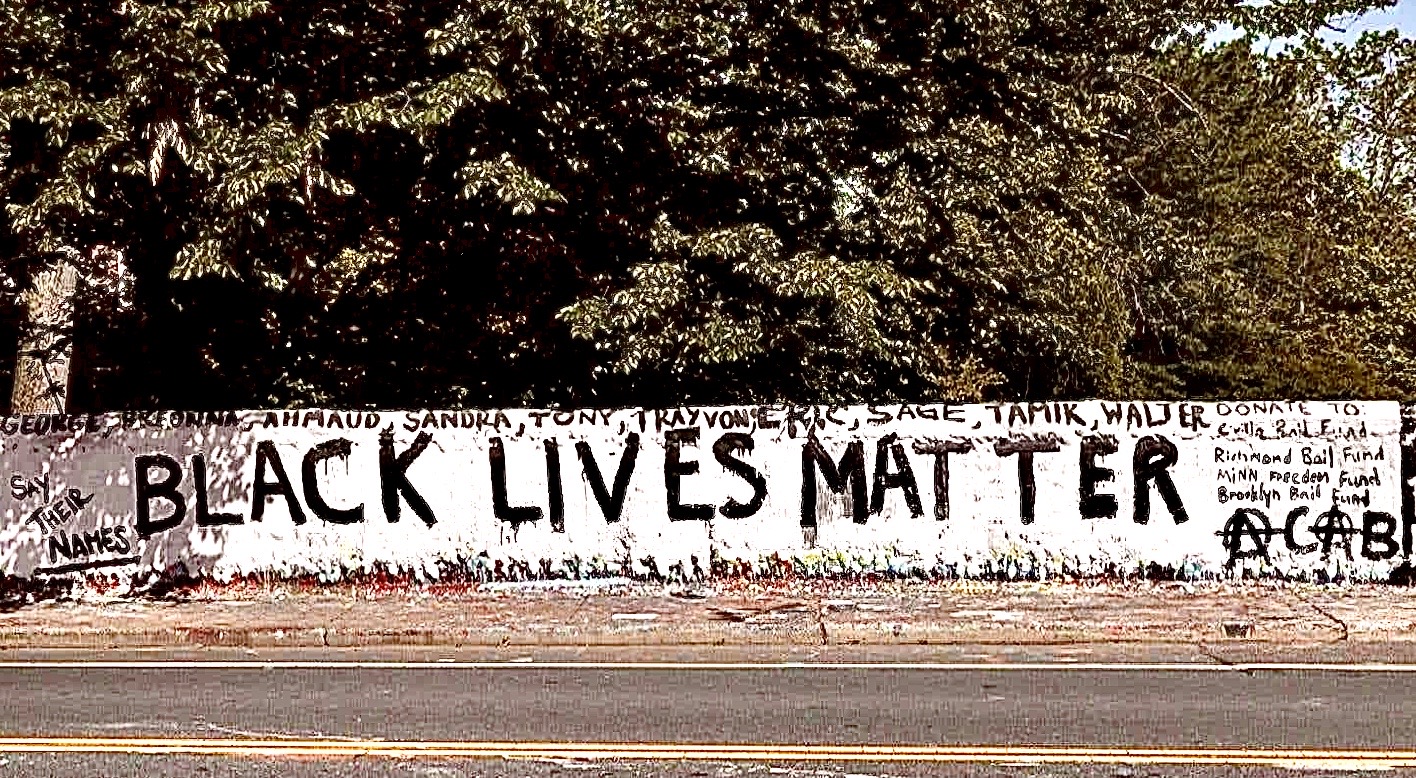 GEORGE, BREONNA, AHMAUD, SANDRA, TONY, TRAYVON, ERIC, SAGE, TAMIR, WALTER
SAY
THEIR
NAMES
BLACK LIVES MATTER
DONATE TO:
Cville Bail Fund
Richmond Bail Fund
MiNN Freedom Fund
Brooklyn Bail Fund
ACAB